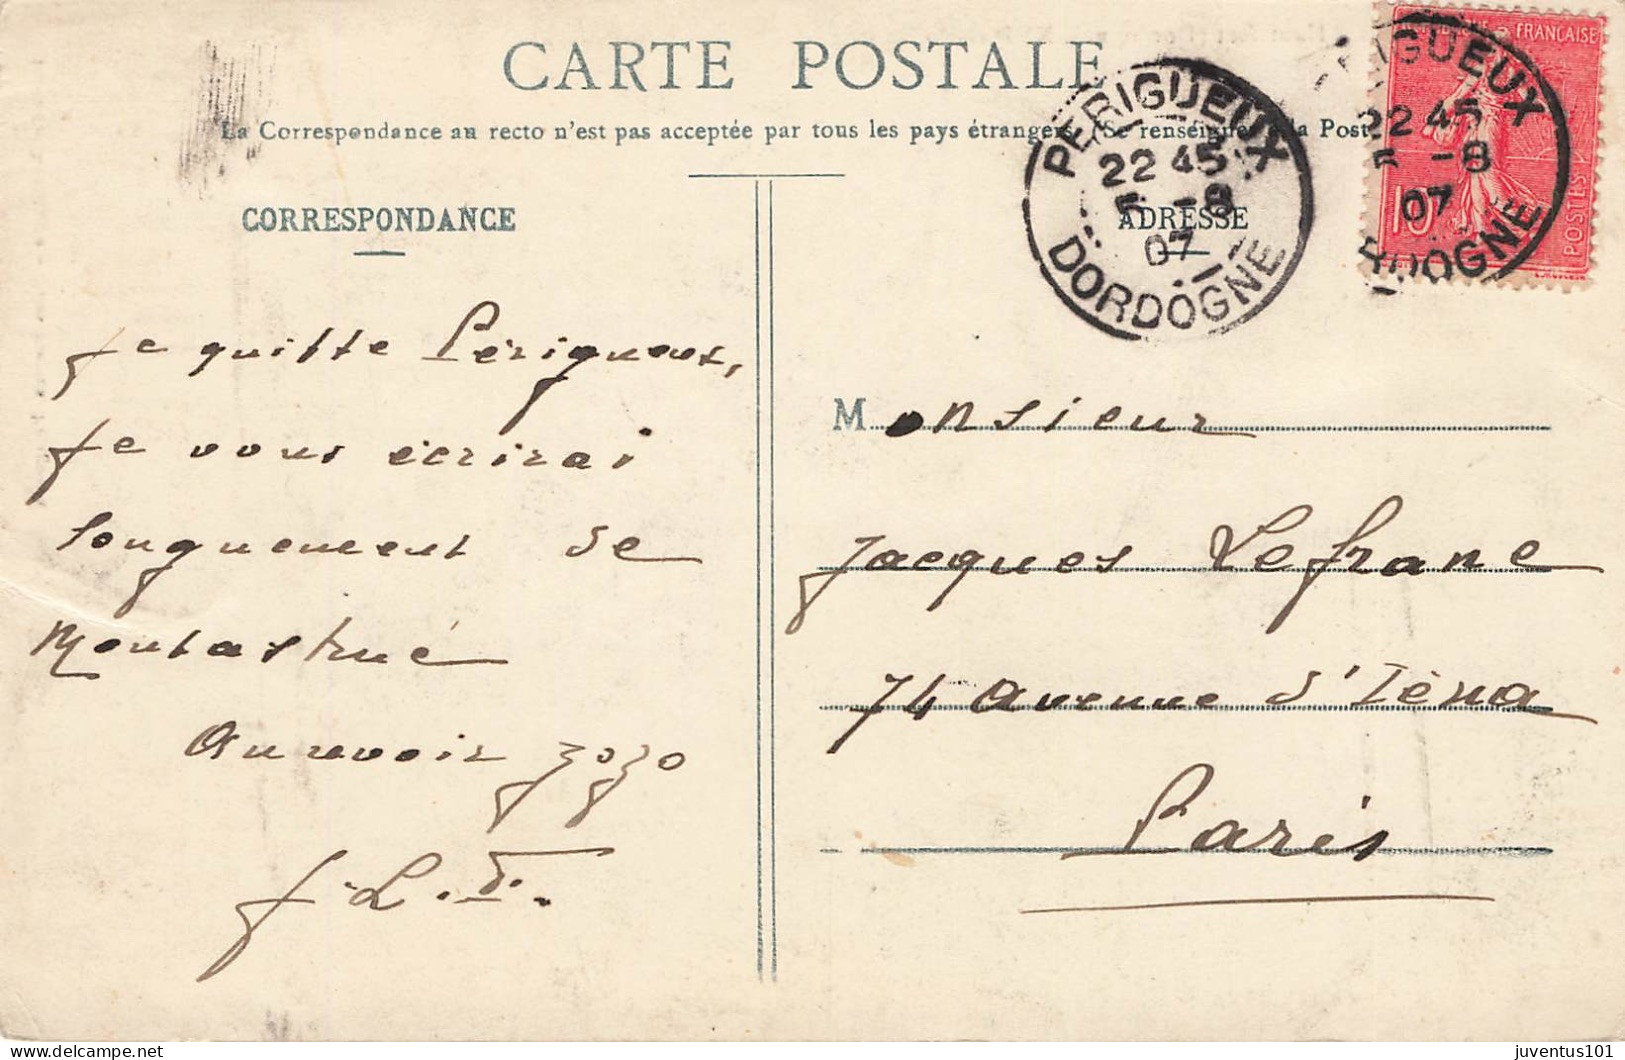 CARTE POSTALE
La Correspondance au recto n'est pas acceptée par tous les pays étrangers (Se renseigner à la Poste
CORRESPONDANCE
ADRESSE
PERIGUEUX
22 45
5 -8
07
DORDOGNE
FRANÇAISE
10
POSTES
RIGUEUX
22 45
5 -8
07
RDOGNE
Je quitte Périgueux,
Je vous écrirai
longuement de
Montastrué
Au revoir zozo
J. L. T.
Monsieur
Jacques Lefranc
74 avenue d'Iéna
Paris
juventus101